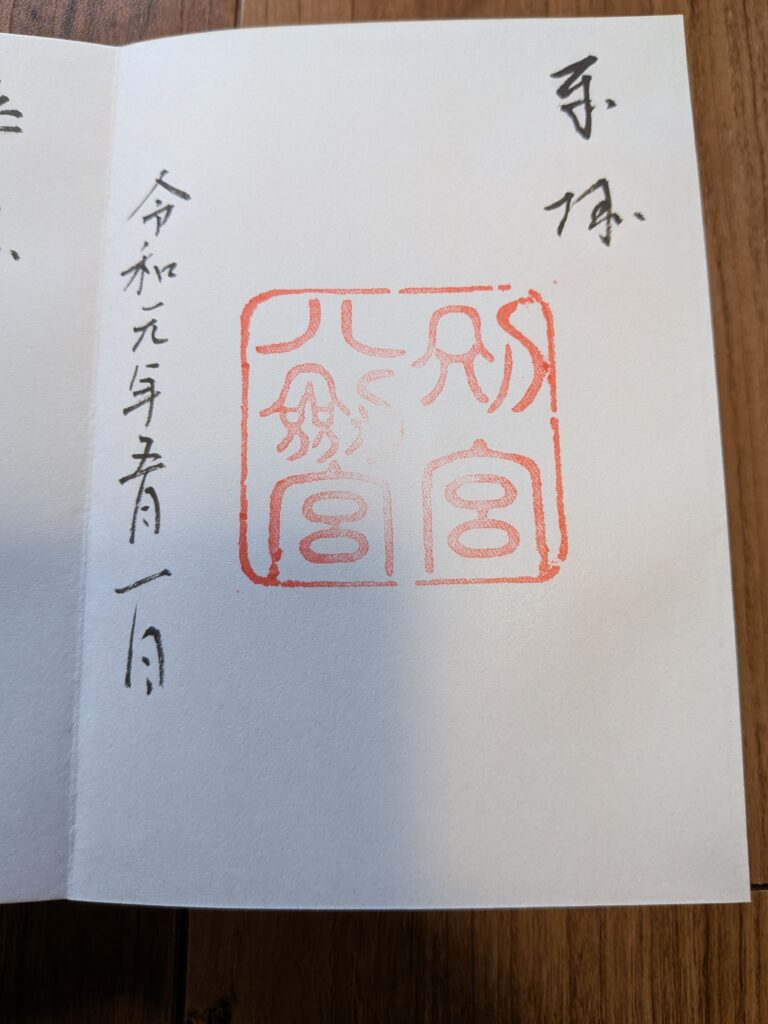 奉拝
別宮
八剣宮
令和元年五月一日